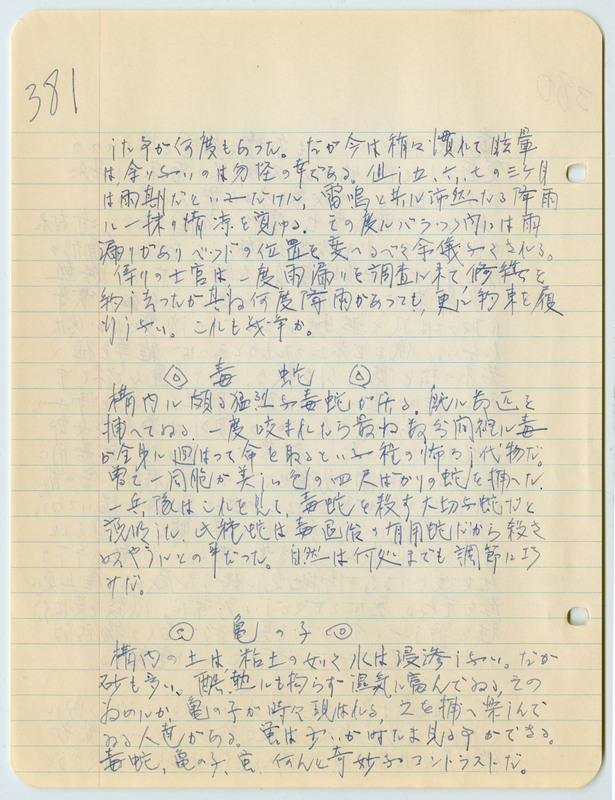 381
した事が何度もあった。だが今は稍々慣れて眩暈
は余りないのは勿怪の幸である。但し五、六、七の三ケ月
は雨期だというだけに、雷鳴と共に沛然たる降雨
に一抹の清涼を覚ゆる。その度にバラック内には雨
漏りがありベッドの位置を変へるべく余儀なくされる。
係りの士官は一度雨漏りを調査に来て修繕を
約し去ったが其後何度降雨があっても、更に約束を履
行しない。これも戦争か。
毒 蛇
構内に頗る猛烈な毒蛇が居る。既に数匹を
捕へてゐる。一度咬まれたら最後数分間裡に毒
が全身に廻はって命を取るといふ程の怖ろし代物だ。
曽て一同胞が美しい色の四尺ばかりの蛇を捕へた。
一兵隊はこれを見て、毒蛇を殺す大切な蛇だと
説明した。此種蛇は毒退治の有用蛇だから殺さ
ぬやうにとの事だった。自然は何処までも調節に巧
みだ。
亀 の 子
構内の土は、粘土の如く水は浸滲しない。だが
砂も多い。酷熱にも拘らず湿気に富んでゐる、その
ゐのか、亀の子が時々現はれる、之を捕へ楽しんで
ゐる人達がある。蛍は少いが時たま見る事ができる。
毒蛇、亀の子、蛍、何んと奇妙なコントラストだ。